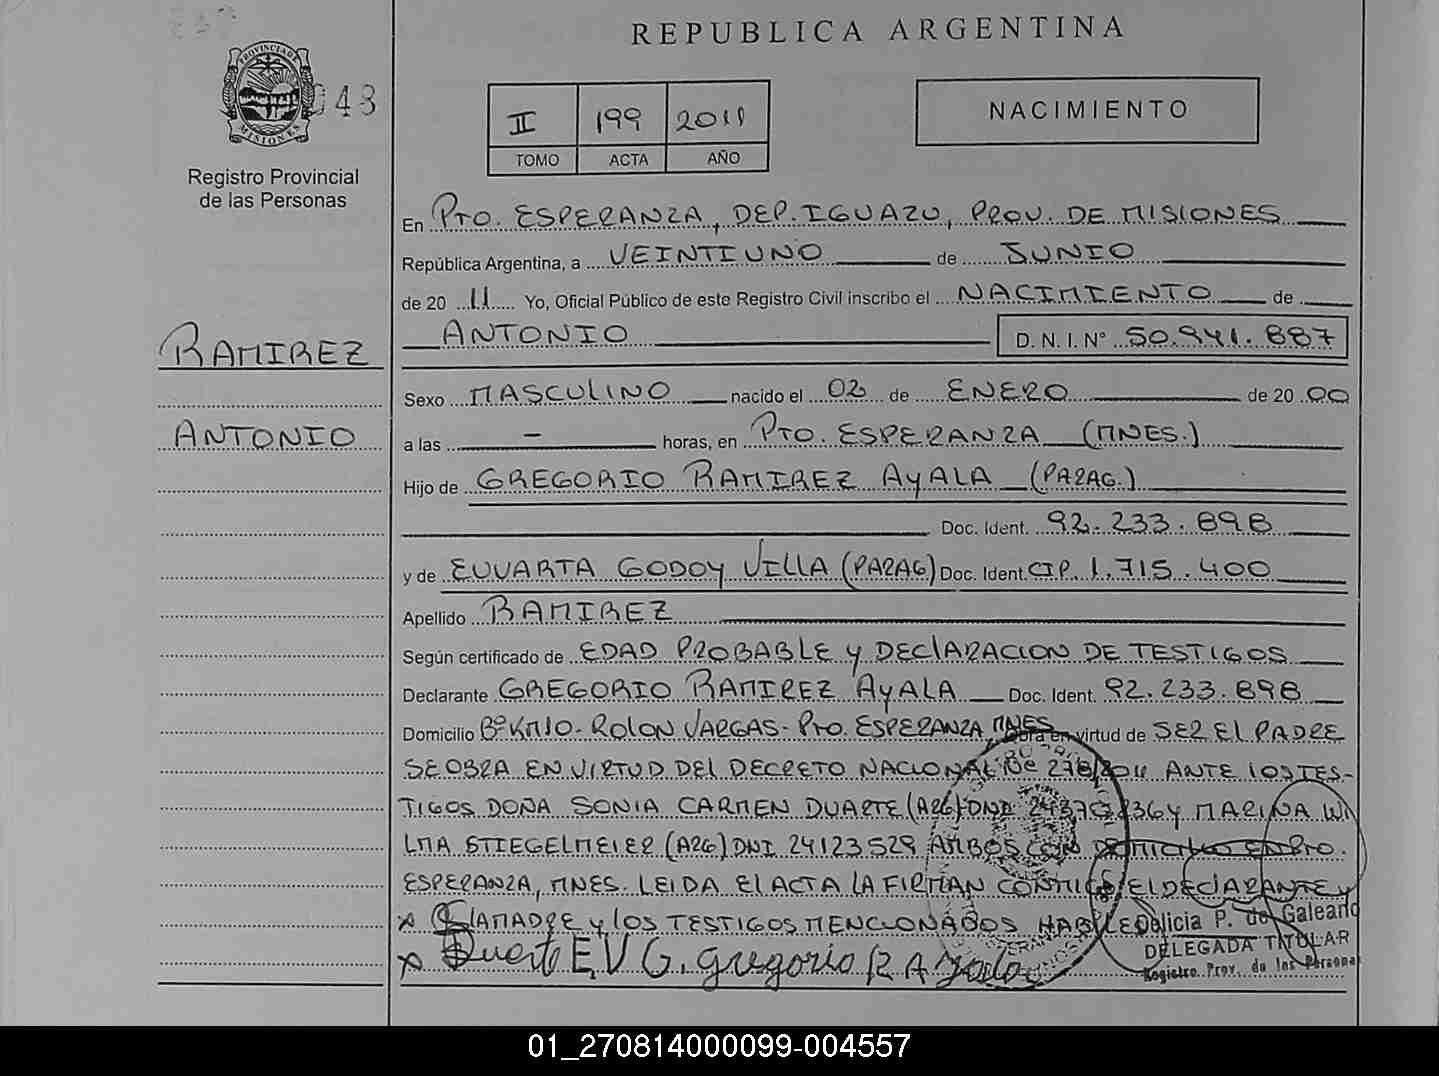 REPUBLICA ARGENTINA
PROVINCIA DE MISIONES
043
Registro Provincial
de las Personas
II 199 2011
TOMO ACTA AÑO
NACIMIENTO
En PTO. ESPERANZA, DEP. IGUAZU, PROV. DE MISIONES
República Argentina, a VEINTIUNO de JUNIO
de 20 11 Yo, Oficial Público de este Registro Civil inscribo el NACIMIENTO de
ANTONIO D. N. I. Nº 50.941.887
RAMIREZ
Sexo MASCULINO nacido el 02 de ENERO de 20 00
ANTONIO
a las - horas, en PTO. ESPERANZA (MNES.)
Hijo de GREGORIO RAMIREZ AYALA (PARAG.)
Doc. Ident. 92.233.898
y de EUVARTA GODOY VILLA (PARAG) Doc. Ident. CIP. 1.715.400
Apellido RAMIREZ
Según certificado de EDAD PROBABLE Y DECLARACION DE TESTIGOS
Declarante GREGORIO RAMIREZ AYALA Doc. Ident. 92.233.898
Domicilio Bº KM10-ROLON VARGAS-PTO. ESPERANZA, MNES Obra en virtud de SER EL PADRE
SE OBRA EN VIRTUD DEL DECRETO NACIONAL Nº 278/2011 ANTE LOS TES-
TIGOS DOÑA SONIA CARMEN DUARTE (ARG) DNI Y MARINA WI
LMA STIEGELMEIER (ARG) DNI 24123529 AMBOS CON DOMICILIO EN PTO.
ESPERANZA, MNES. LEIDA EL ACTA LA FIRMAN CONMIGO EL DECLARANTE Y
LA MADRE Y LOS TESTIGOS MENCIONADOS
Delicia P. de Galeano
DELEGADA TITULAR
Registro Prov. de las Personas
x Duarte E, V G. gregorio R Ayala
01_270814000099-004557